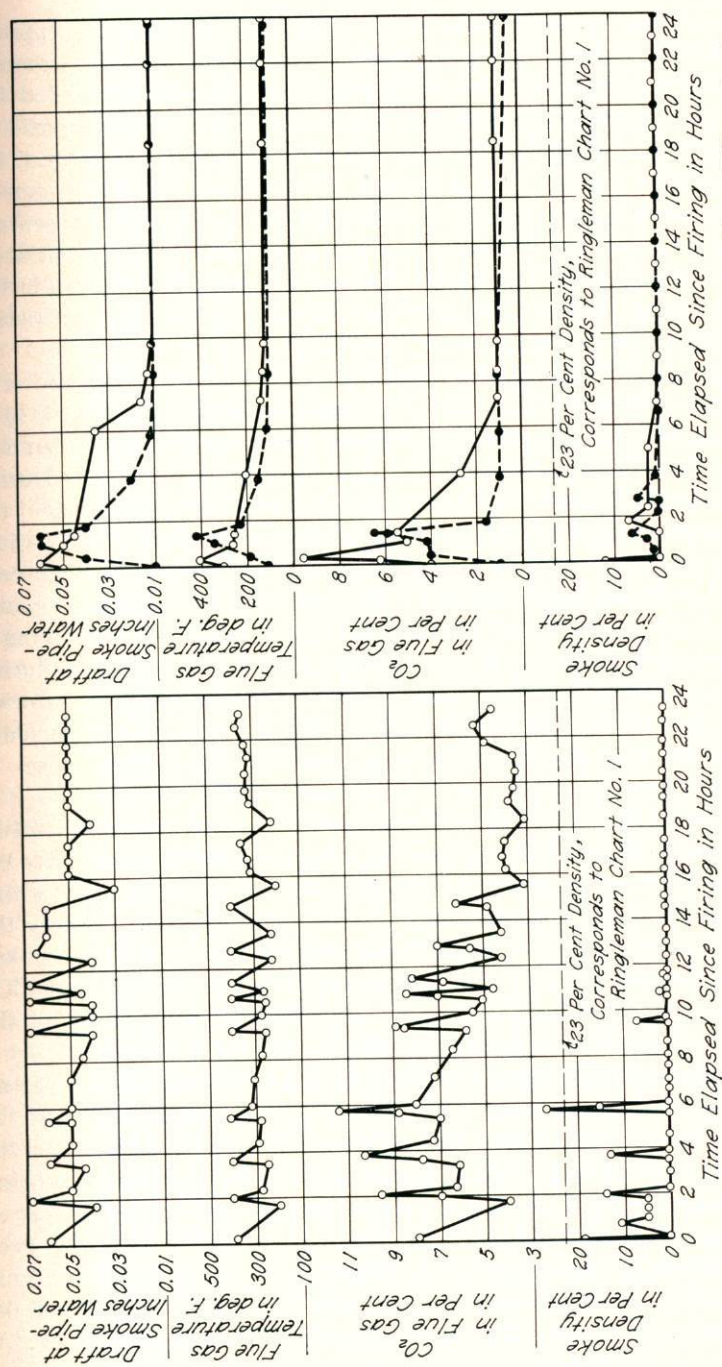 Draft at
Smoke Pipe-
Inches Water
0.07
0.05
0.03
Flue Gas
Temperature
in deg. F.
500
300
100
CO₂
in Flue Gas
in Per Cent
9
7
5
3
Smoke
Density
in Per Cent
20
10
0
23 Per Cent Density,
Corresponds to
Ringleman Chart No. 1
0 2 4 6 8 10 12 14 16 18 20 22 24
Time Elapsed Since Firing in Hours
Draft at
Smoke Pipe-
Inches Water
0.07
0.05
0.03
0.01
Flue Gas
Temperature
in deg. F.
400
200
0
CO₂
in Flue Gas
in Per Cent
8
6
4
2
0
Smoke
Density
in Per Cent
20
10
0
23 Per Cent Density,
Corresponds to Ringleman Chart No. 1
0 2 4 6 8 10 12 14 16 18 20 22 24
Time Elapsed Since Firing in Hours